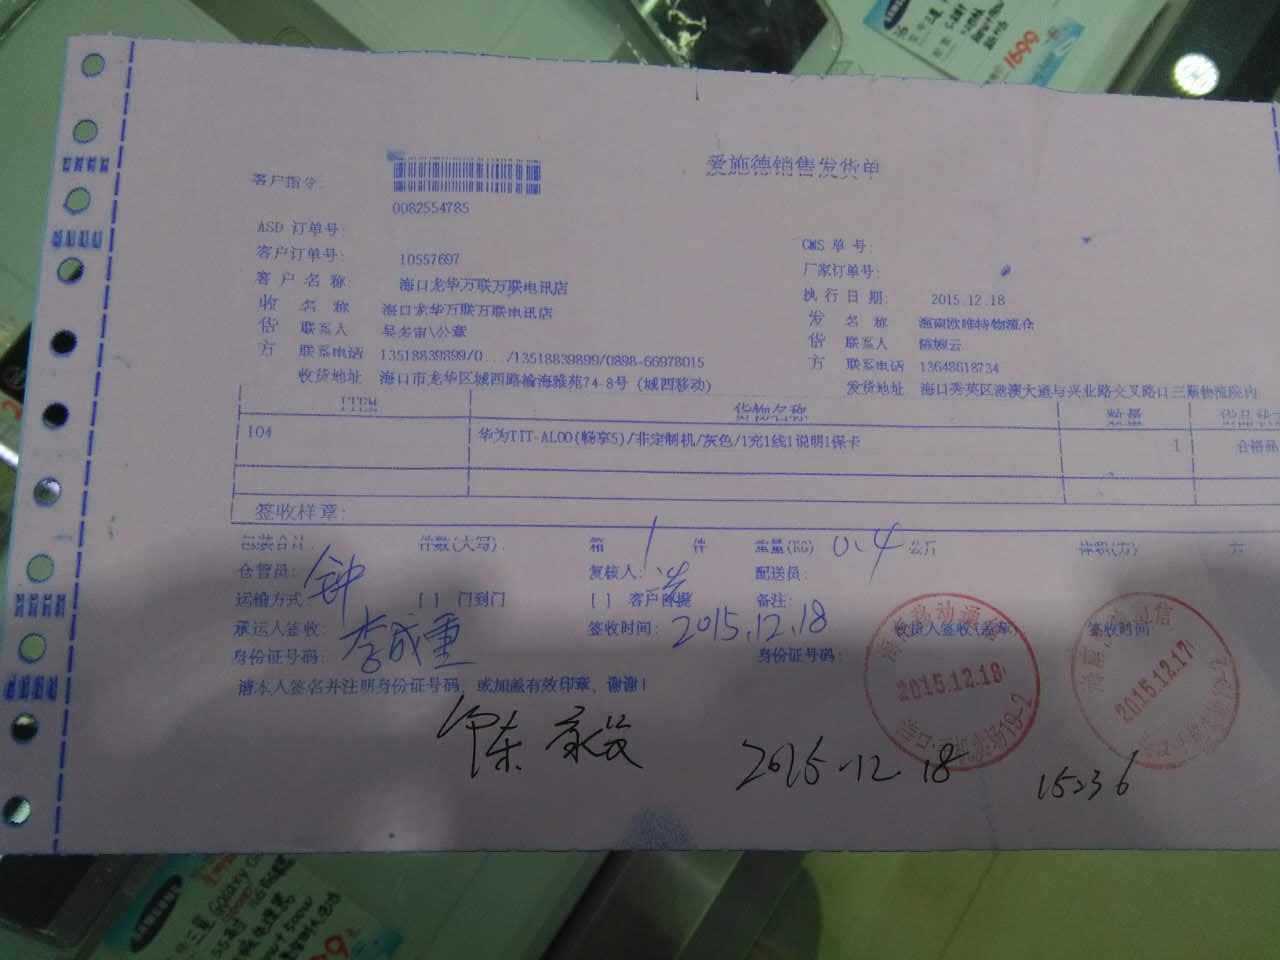 爱施德销售发货单
客户指令:
0082554785
ASD 订单号:
CMS 单号:
客户订单号: 10557697
厂家订单号:
客户名称: 海口龙华万联万联电讯店
执行日期: 2015.12.18
收货方 名称 海口龙华万联万联电讯店
发货方 名称 海南欧唯特物流仓
联系人
联系人 陈婉云
联系电话 13518839899/0.../13518839899/0898-66978015
联系电话 13648618734
收货地址 海口市龙华区城西路榆海雅苑74-8号 (城西移动)
发货地址 海口秀英区港澳大道与兴业路交叉路口三顺物流院内
ITEM 货物名称 数量 货品状
104 华为TIT-AL00(畅享5)/非定制机/灰色/1充1线1说明1保卡 1 合格品
签收样章:
包装合计: 件数(大写): 箱 1 件 重量(KG) 0.4 公斤 体积(方) 方
仓管员: 钟 复核人: 配送员:
运输方式 [ ] 门到门 [ ] 客户自提 备注:
承运人签收: 李成重 签收时间: 2015.12.18 收货人签收(盖章) 签收时间
身份证号码: 身份证号码:
请本人签名并注明身份证号码, 或加盖有效印章, 谢谢!
2015.12.18
2015.12.17
2015.12.18 15236
SAMSUNG
1699
SAMSUNG
三星 Galaxy